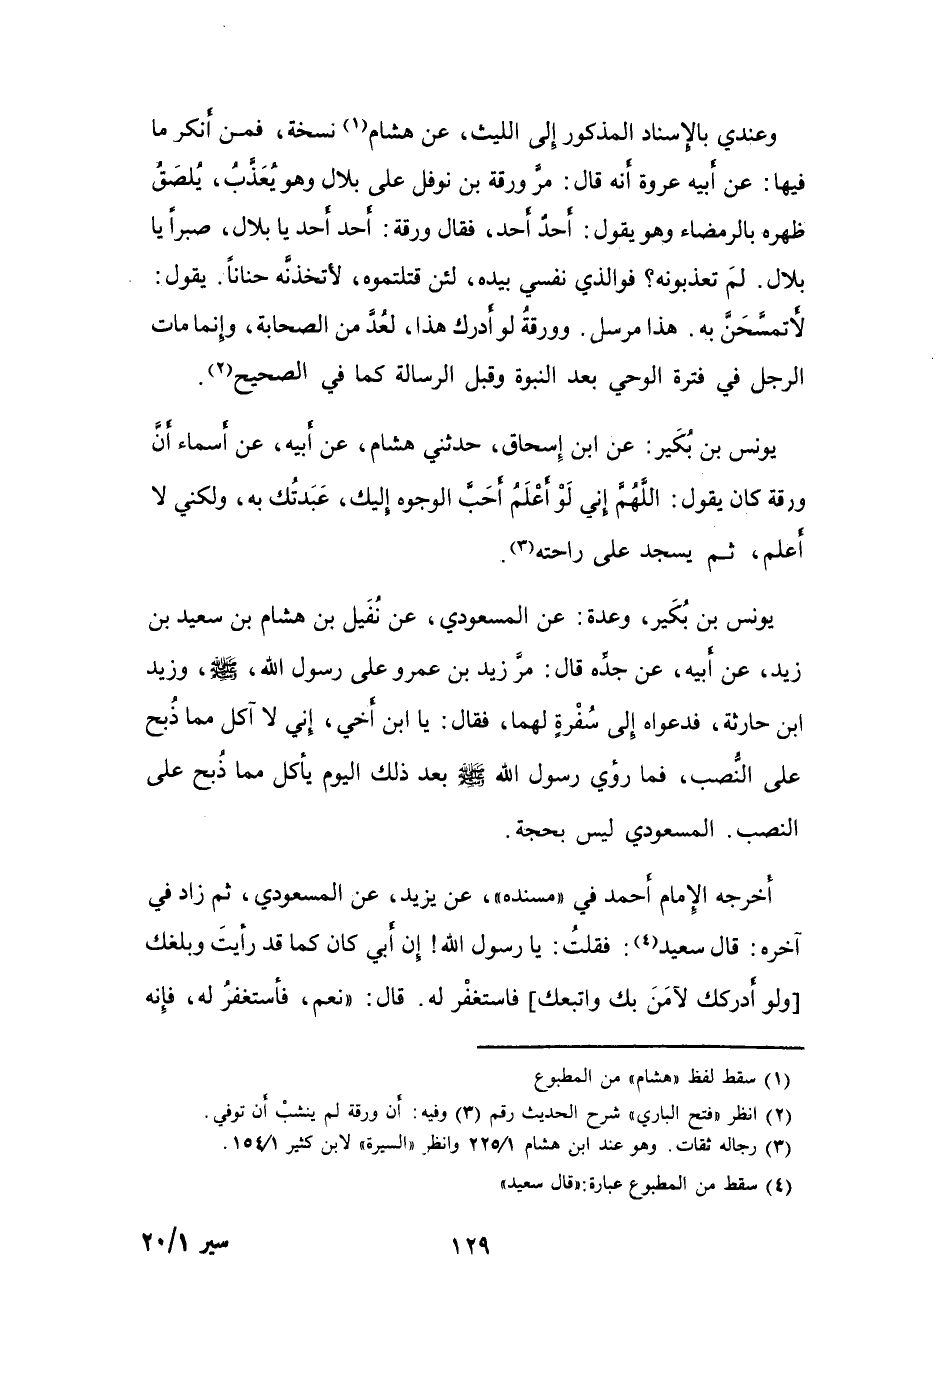 وعندي بالإسناد المذكور إلى الليث، عن هشام(١) نسخة، فمن أَنكر ما
فيها: عن أَبيه عروة أَنه قال: مرَّ ورقة بن نوفل على بلال وهو يُعَذَّبُ، يُلصَقُ
ظهره بالرمضاء وهو يقول: أَحدٌ أَحد، فقال ورقة: أَحد أَحد يا بلال، صبراً يا
بلال. لمَ تعذبونه؟ فوالذي نفسي بيده، لئن قتلتموه، لأتخذنَّه حناناً. يقول:
لأَتمسَّحَنَّ به. هذا مرسل. وورقةُ لو أَدرك هذا، لعُدَّ من الصحابة، وإنما مات
الرجل في فترة الوحي بعد النبوة وقبل الرسالة كما في الصحيح(٢).
يونس بن بُكَير: عن ابن إسحاق، حدثني هشام، عن أَبيه، عن أَسماء أَنَّ
ورقة كان يقول: اللَّهُمَّ إني لَوْ أَعْلَمُ أَحَبَّ الوجوه إليك، عَبَدتُك به، ولكني لا
أَعلم، ثم يسجد على راحته(٣).
يونس بن بُكَير، وعدة: عن المسعودي، عن نُفَيل بن هشام بن سعيد بن
زيد، عن أَبيه، عن جدِّه قال: مرَّ زيد بن عمرو على رسول الله، ﷺ، وزيد
ابن حارثة، فدعواه إلى سُفْرةٍ لهما، فقال: يا ابن أَخي، إني لا آكل مما ذُبح
على النُّصب، فما رؤي رسول الله ﷺ بعد ذلك اليوم يأكل مما ذُبح على
النصب. المسعودي ليس بحجة.
أَخرجه الإمام أَحمد في «مسنده»، عن يزيد، عن المسعودي، ثم زاد في
آخره: قال سعيد(٤): فقلتُ: يا رسول الله! إن أَبي كان كما قد رأَيتَ وبلغك
[ولو أَدركك لآمَنَ بك واتبعك] فاستغفْر له. قال: «نعم، فأستغفرُ له، فإنه
(١) سقط لفظ «هشام» من المطبوع
(٢) انظر «فتح الباري» شرح الحديث رقم (٣) وفيه: أن ورقة لم ينشبْ أن توفي.
(٣) رجاله ثقات. وهو عند ابن هشام ٢٢٥/١ وانظر «السيرة» لابن كثير ١٥٤/١.
(٤) سقط من المطبوع عبارة:«قال سعيد»
١٢٩
سير ٢٠/١